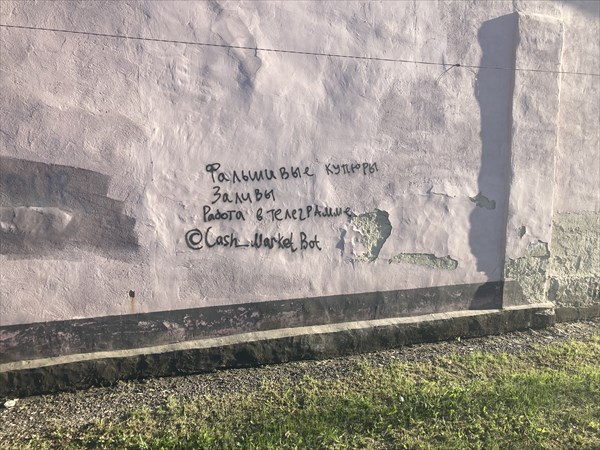 Фальшивые купюры
Заливы
Работа в телеграмме
@Cash_Market_Bot